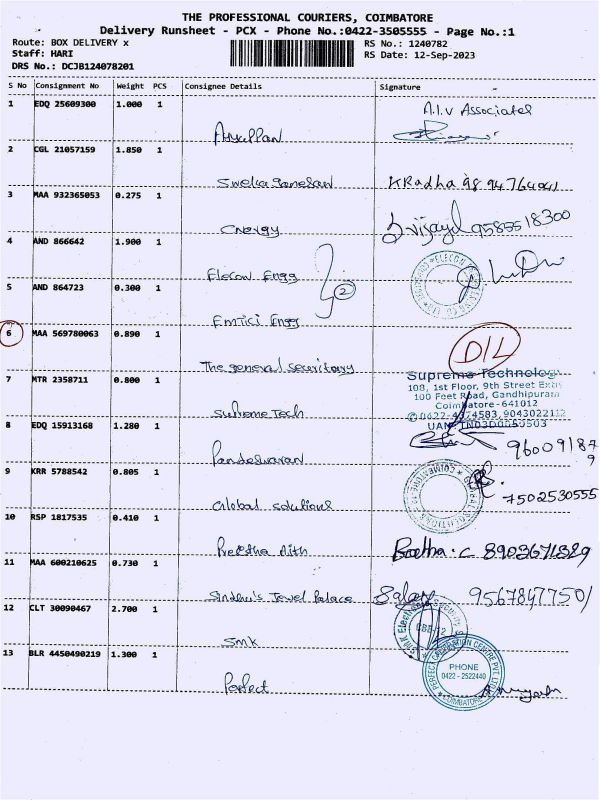 THE PROFESSIONAL COURIERS, COIMBATORE
Delivery Runsheet - PCX - Phone No.:0422-3505555 - Page No.:1
Route: BOX DELIVERY x
RS No.: 1240782
Staff: HARI
RS Date: 12-Sep-2023
DRS No.: DCJB124078201
S No Consignment No Weight PCS Consignee Details Signature
1 EDQ 25609300 1.000 1
A.I.V Associates
2 CGL 21057159 1.850 1
K Radha 98 94764041
3 MAA 932365053 0.275 1
Cnergy
4 AND 866642 1.900 1
Elecon Engg
5 AND 864723 0.300 1
2
Emtici Engg
6 MAA 569780063 0.890 1
D/L
The general secretary
7 MTR 2358711 0.800 1
Supreme Technology
108, 1st Floor, 9th Street Extn
100 Feet Road, Gandhipuram
Coimbatore-641012
Supreme Tech
8 EDQ 15913168 1.280 1
Pandeswaran
9 KRR 5788542 0.805 1
7502530555
Global solutions
10 RSP 1817535 0.410 1
11 MAA 600210625 0.730 1
Sindhu's Jewel Palace
12 CLT 30090467 2.700 1
CBE-12
SMK
13 BLR 4450490219 1.300 1
PERFECT CALIBRATION CENTRE PVT. LTD
PHONE
0422 - 2522440
COIMBATORE
Perfect